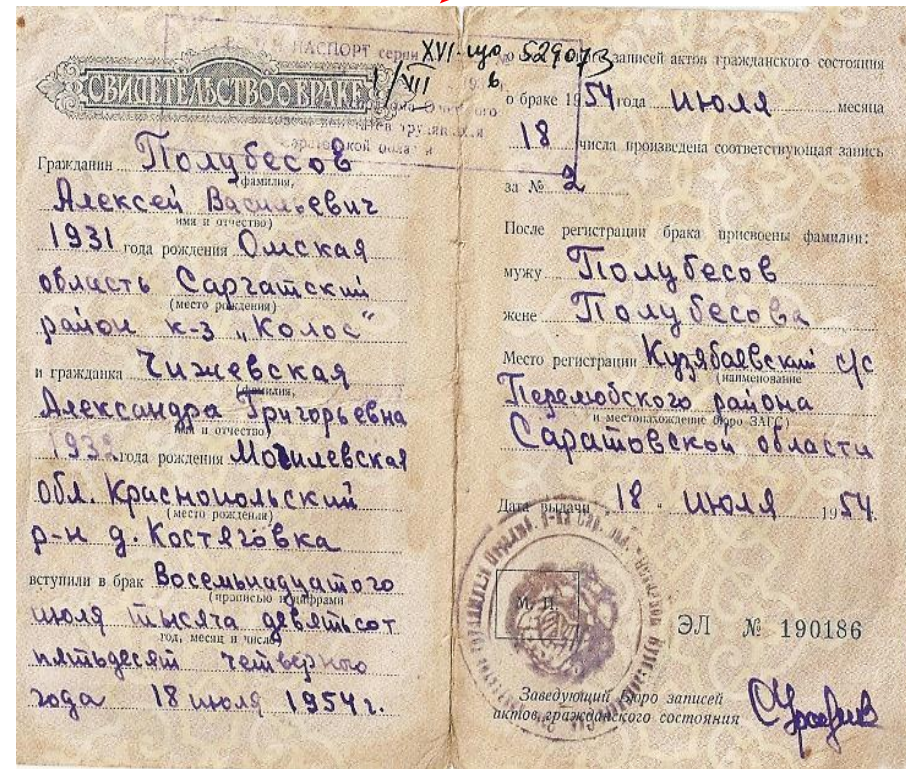 ПАСПОРТ серии XVI-що № 529073
СВИДЕТЕЛЬСТВО О БРАКЕ
Гражданин Полубесов
(фамилия,
Алексей Васильевич
имя и отчество)
1931 года рождения Омская
область Саргатский
(место рождения)
район к-з „Колос“
и гражданка Чижевская
(фамилия,
Александра Григорьевна
имя и отчество)
1932 года рождения Могилевская
обл. Краснопольский
(место рождения)
р-н д. Костяговка
вступили в брак Восемьнадцатого
(прописью и цифрами
июля тысяча девятьсот
год, месяц и число)
пятьдесят четверного
года 18 июля 1954 г.
записей актов гражданского состояния
о браке 1954 года июля месяца
18 числа произведена соответствующая запись
за № 2
После регистрации брака присвоены фамилии:
мужу Полубесов
жене Полубесова
Место регистрации Кузябаевский с/с
(наименование
района
и местонахождение бюро ЗАГС)
Саратовской области
Дата выдачи 18 " июля 1954.
М. П.
ЭЛ № 190186
Заведующий бюро записей
актов гражданского состояния